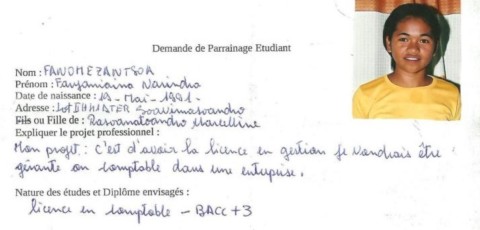 Demande de Parrainage Etudiant
Nom : FANOMEZANTSOA
Prénom : Fanjaniaina Narindra
Date de naissance : 19 - Mai - 1991 -
Adresse : Lot
Fils ou Fille de : Marcelline
Expliquer le projet professionnel :
Mon projet : c'est d'avoir la licence en gestion je voudrais être
gérante ou comptable dans une entreprise.
Nature des études et Diplôme envisagés :
licence en comptable - BACC + 3